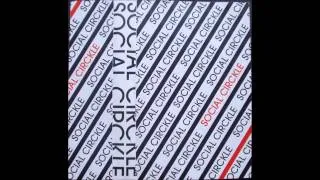 SOCIAL CIRCKLE
SOCIAL CIRCKLE
SOCIAL CIRCKLE
SOCIAL CIRCKLE
SOCIAL CIRCKLE
SOCIAL CIRCKLE
SOCIAL CIRCKLE
SOCIAL CIRCKLE
SOCIAL CIRCKLE
SOCIAL CIRCKLE
SOCIAL CIRCKLE